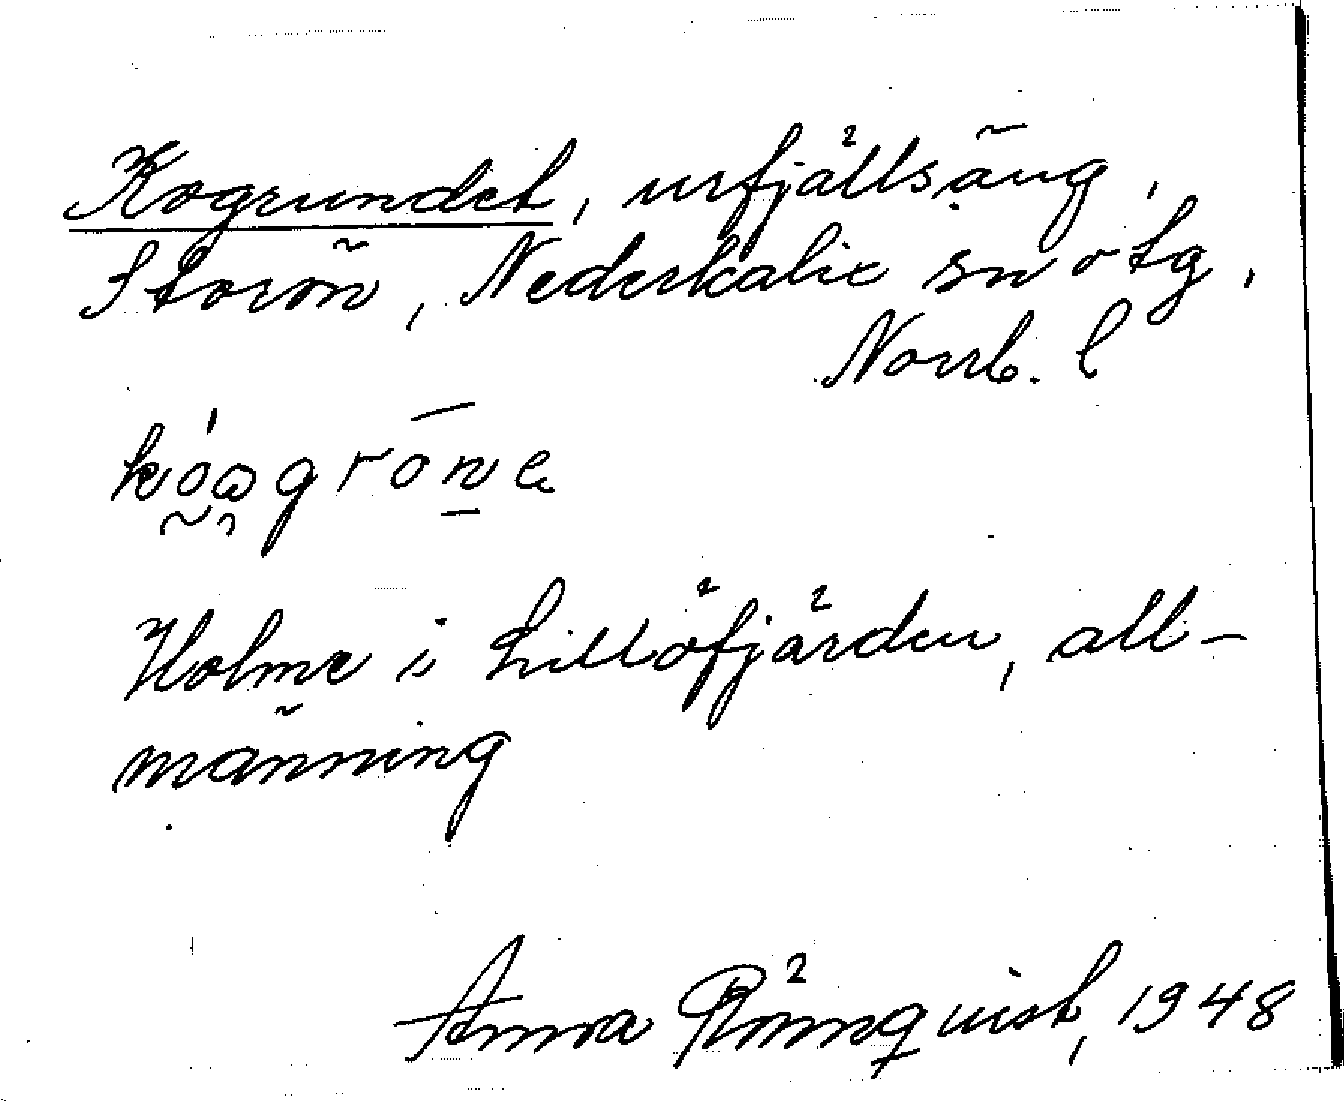 Kogrundet, urfjällsäng,
Storön, Nederkalix sn o tg,
Norrb. l
Holme i Lillöfjärden, all-
männing
Anna Rönnquist, 1948